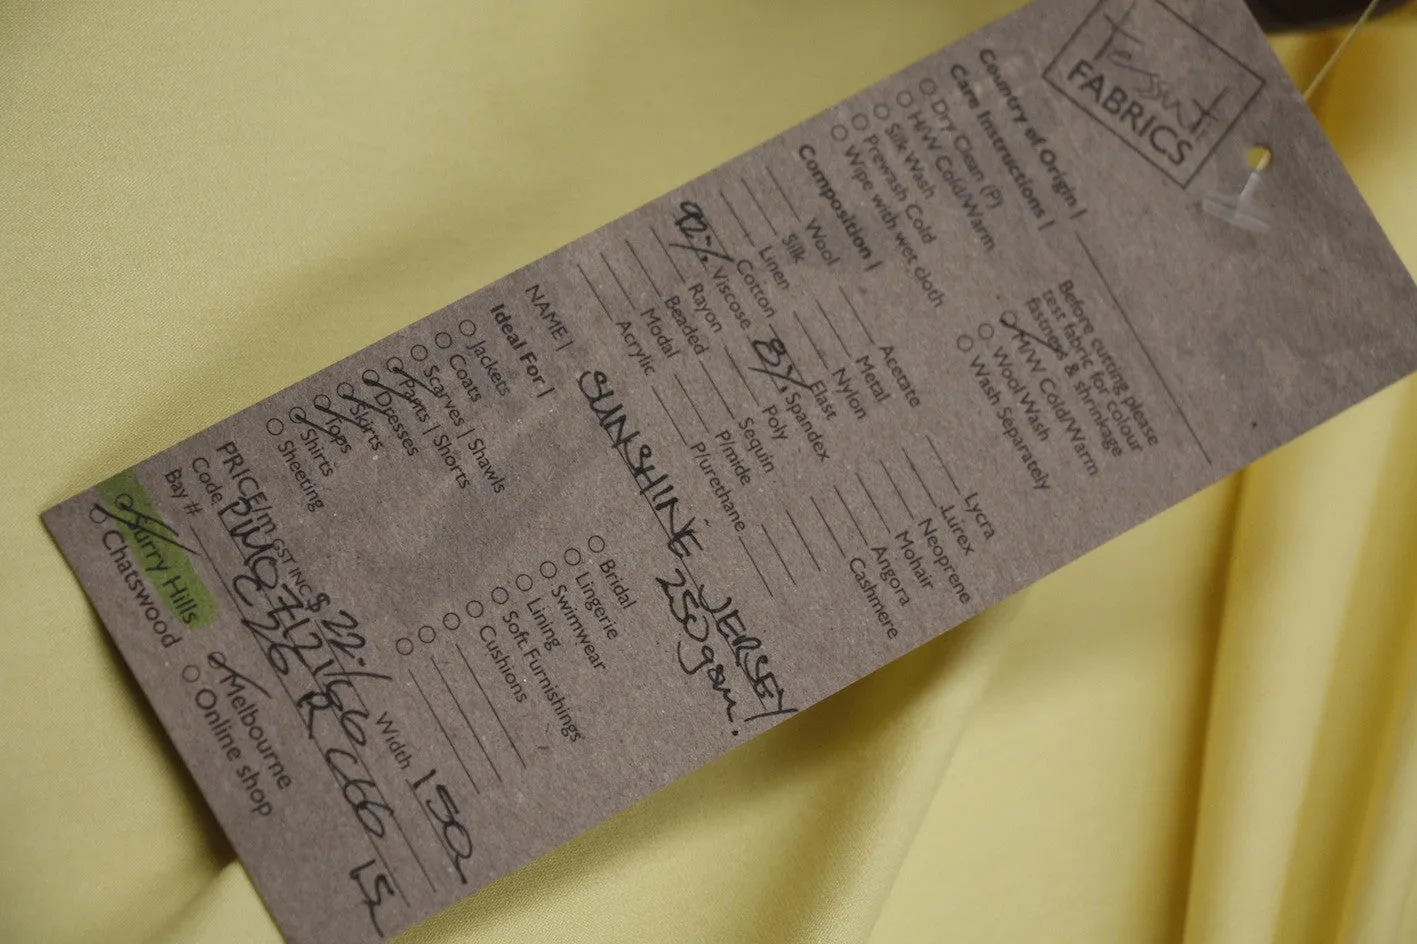 Tessuti
FABRICS
Country of Origin |
Care Instructions |
Dry Clean (P)
H/W Cold/Warm
Silk Wash
Prewash Cold
Wipe with wet cloth
Before cutting please
test fabric for colour
fastness & shrinkage
H/W Cold/Warm
Wool Wash
Wash Separately
Composition |
Wool
Silk
Linen
Cotton
92% Viscose
Rayon
Beaded
Modal
Acrylic
Acetate
Metal
Nylon
Elast
8% Spandex
Poly
Sequin
P/mide
P/urethane
Lycra
Lurex
Neoprene
Mohair
Angora
Cashmere
NAME | SUNSHINE JERSEY
250gsm.
Ideal For |
Jackets
Coats
Scarves | Shawls
Pants | Shorts
Dresses
Skirts
Tops
Shirts
Sheeting
Bridal
Lingerie
Swimwear
Lining
Soft Furnishings
Cushions
PRICE/m GST INC $ 22:/ Width 150
Code
Bay #
Surry Hills
Chatswood
Melbourne
Online shop